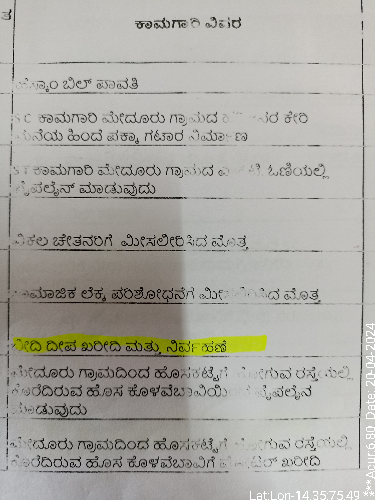 ತ
ಕಾಮಗಾರಿ ವಿವರ
ಹೆಸ್ಕಾಂ ಬಿಲ್ ಪಾವತಿ
S C ಕಾಮಗಾರಿ ಮೇದೂರು ಗ್ರಾಮದ ಕೇರಿ
ಮನೆಯ ಹಿಂದೆ ಪಕ್ಕಾ ಗಟಾರ ನಿರ್ಮಾಣ
S T ಕಾಮಗಾರಿ ಮೇದೂರು ಗ್ರಾಮದ ಓಣಿಯಲ್ಲಿ
ಪೈಪಲೈನ್ ಮಾಡುವುದು
ವಿಕಲ ಚೇತನರಿಗೆ ಮೀಸಲೀರಿಸಿದ ಮೊತ್ತ
ಸಾಮಾಜಿಕ ಲೆಕ್ಕ ಪರಿಶೋಧನೆಗೆ ಮೀಸಲೀರಿಸಿದ ಮೊತ್ತ
ಬೀದಿ ದೀಪ ಖರೀದಿ ಮತ್ತು ನಿರ್ವಹಣೆ
ಮೇದೂರು ಗ್ರಾಮದಿಂದ ಹೊಸಕಟ್ಟೆಗೆ ಹೋಗುವ ರಸ್ತೆಯಲ್ಲಿ
ಕೊರೆದಿರುವ ಹೊಸ ಕೊಳವೆಬಾವಿಯಿಂದ ಪೈಪಲೈನ
ಮಾಡುವುದು
ಮೇದೂರು ಗ್ರಾಮದಿಂದ ಹೊಸಕಟ್ಟೆಗೆ ಹೋಗುವ ರಸ್ತೆಯಲ್ಲಿ
ಕೊರೆದಿರುವ ಹೊಸ ಕೊಳವೆಬಾವಿಗೆ ಖರೀದಿ
Lat Lon-14.357549 ***
***Acur:6.80 Date: 20-04-2024